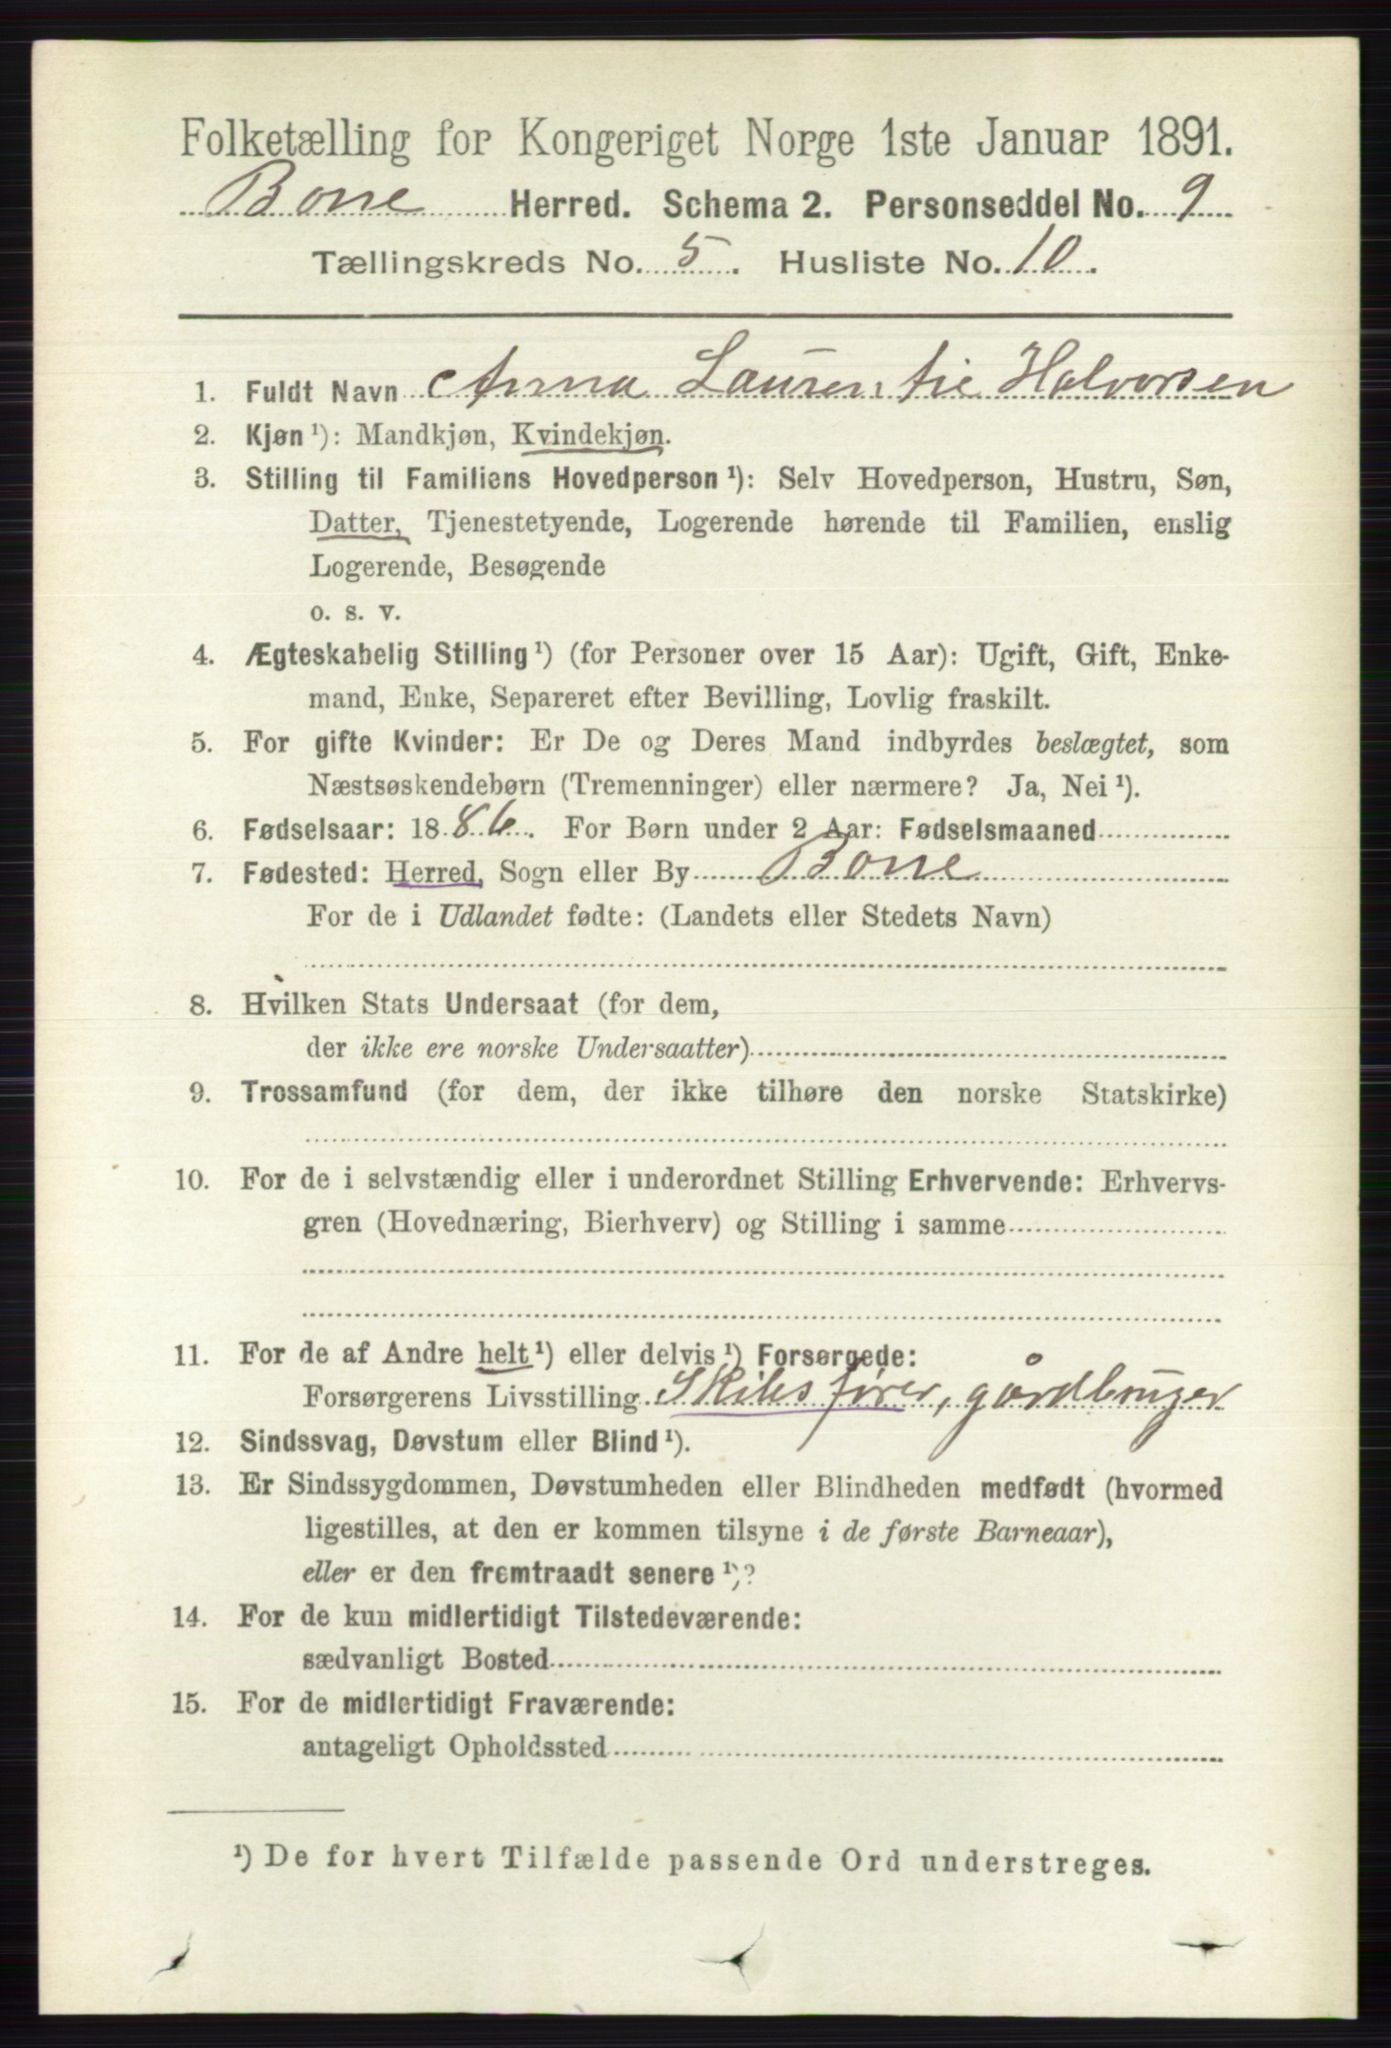 Folketælling for Kongeriget Norge 1ste Januar 1891.
Borre Herred. Schema 2. Personseddel No. 9
Tællingskreds No. 5. Husliste No. 10.
1. Fuldt Navn Anna Laurentie Halvorsen
2. Kjøn ¹): Mandkjøn, Kvindekjøn.
3. Stilling til Familiens Hovedperson ¹): Selv Hovedperson, Hustru, Søn,
Datter, Tjenestetyende, Logerende hørende til Familien, enslig
Logerende, Besøgende
o. s. v.
4. Ægteskabelig Stilling ¹) (for Personer over 15 Aar): Ugift, Gift, Enke-
mand, Enke, Separeret efter Bevilling, Lovlig fraskilt.
5. For gifte Kvinder: Er De og Deres Mand indbyrdes beslægtet, som
Næstsøskendebørn (Tremenninger) eller nærmere? Ja, Nei ¹).
6. Fødselsaar: 1886. For Børn under 2 Aar: Fødselsmaaned
7. Fødested: Herred, Sogn eller By Borre
For de i Udlandet fødte: (Landets eller Stedets Navn)
8. Hvilken Stats Undersaat (for dem,
der ikke ere norske Undersaatter)
9. Trossamfund (for dem, der ikke tilhøre den norske Statskirke)
10. For de i selvstændig eller i underordnet Stilling Erhvervende: Erhvervs-
gren (Hovednæring, Bierhverv) og Stilling i samme
11. For de af Andre helt ¹) eller delvis ¹) Forsørgede:
Forsørgerens Livsstilling Skibsfører, gårdbruger
12. Sindssvag, Døvstum eller Blind ¹).
13. Er Sindssygdommen, Døvstumheden eller Blindheden medfødt (hvormed
ligestilles, at den er kommen tilsyne i de første Barneaar),
eller er den fremtraadt senere ¹)?
14. For de kun midlertidigt Tilstedeværende:
sædvanligt Bosted
15. For de midlertidigt Fraværende:
antageligt Opholdssted
¹) De for hvert Tilfælde passende Ord understreges.